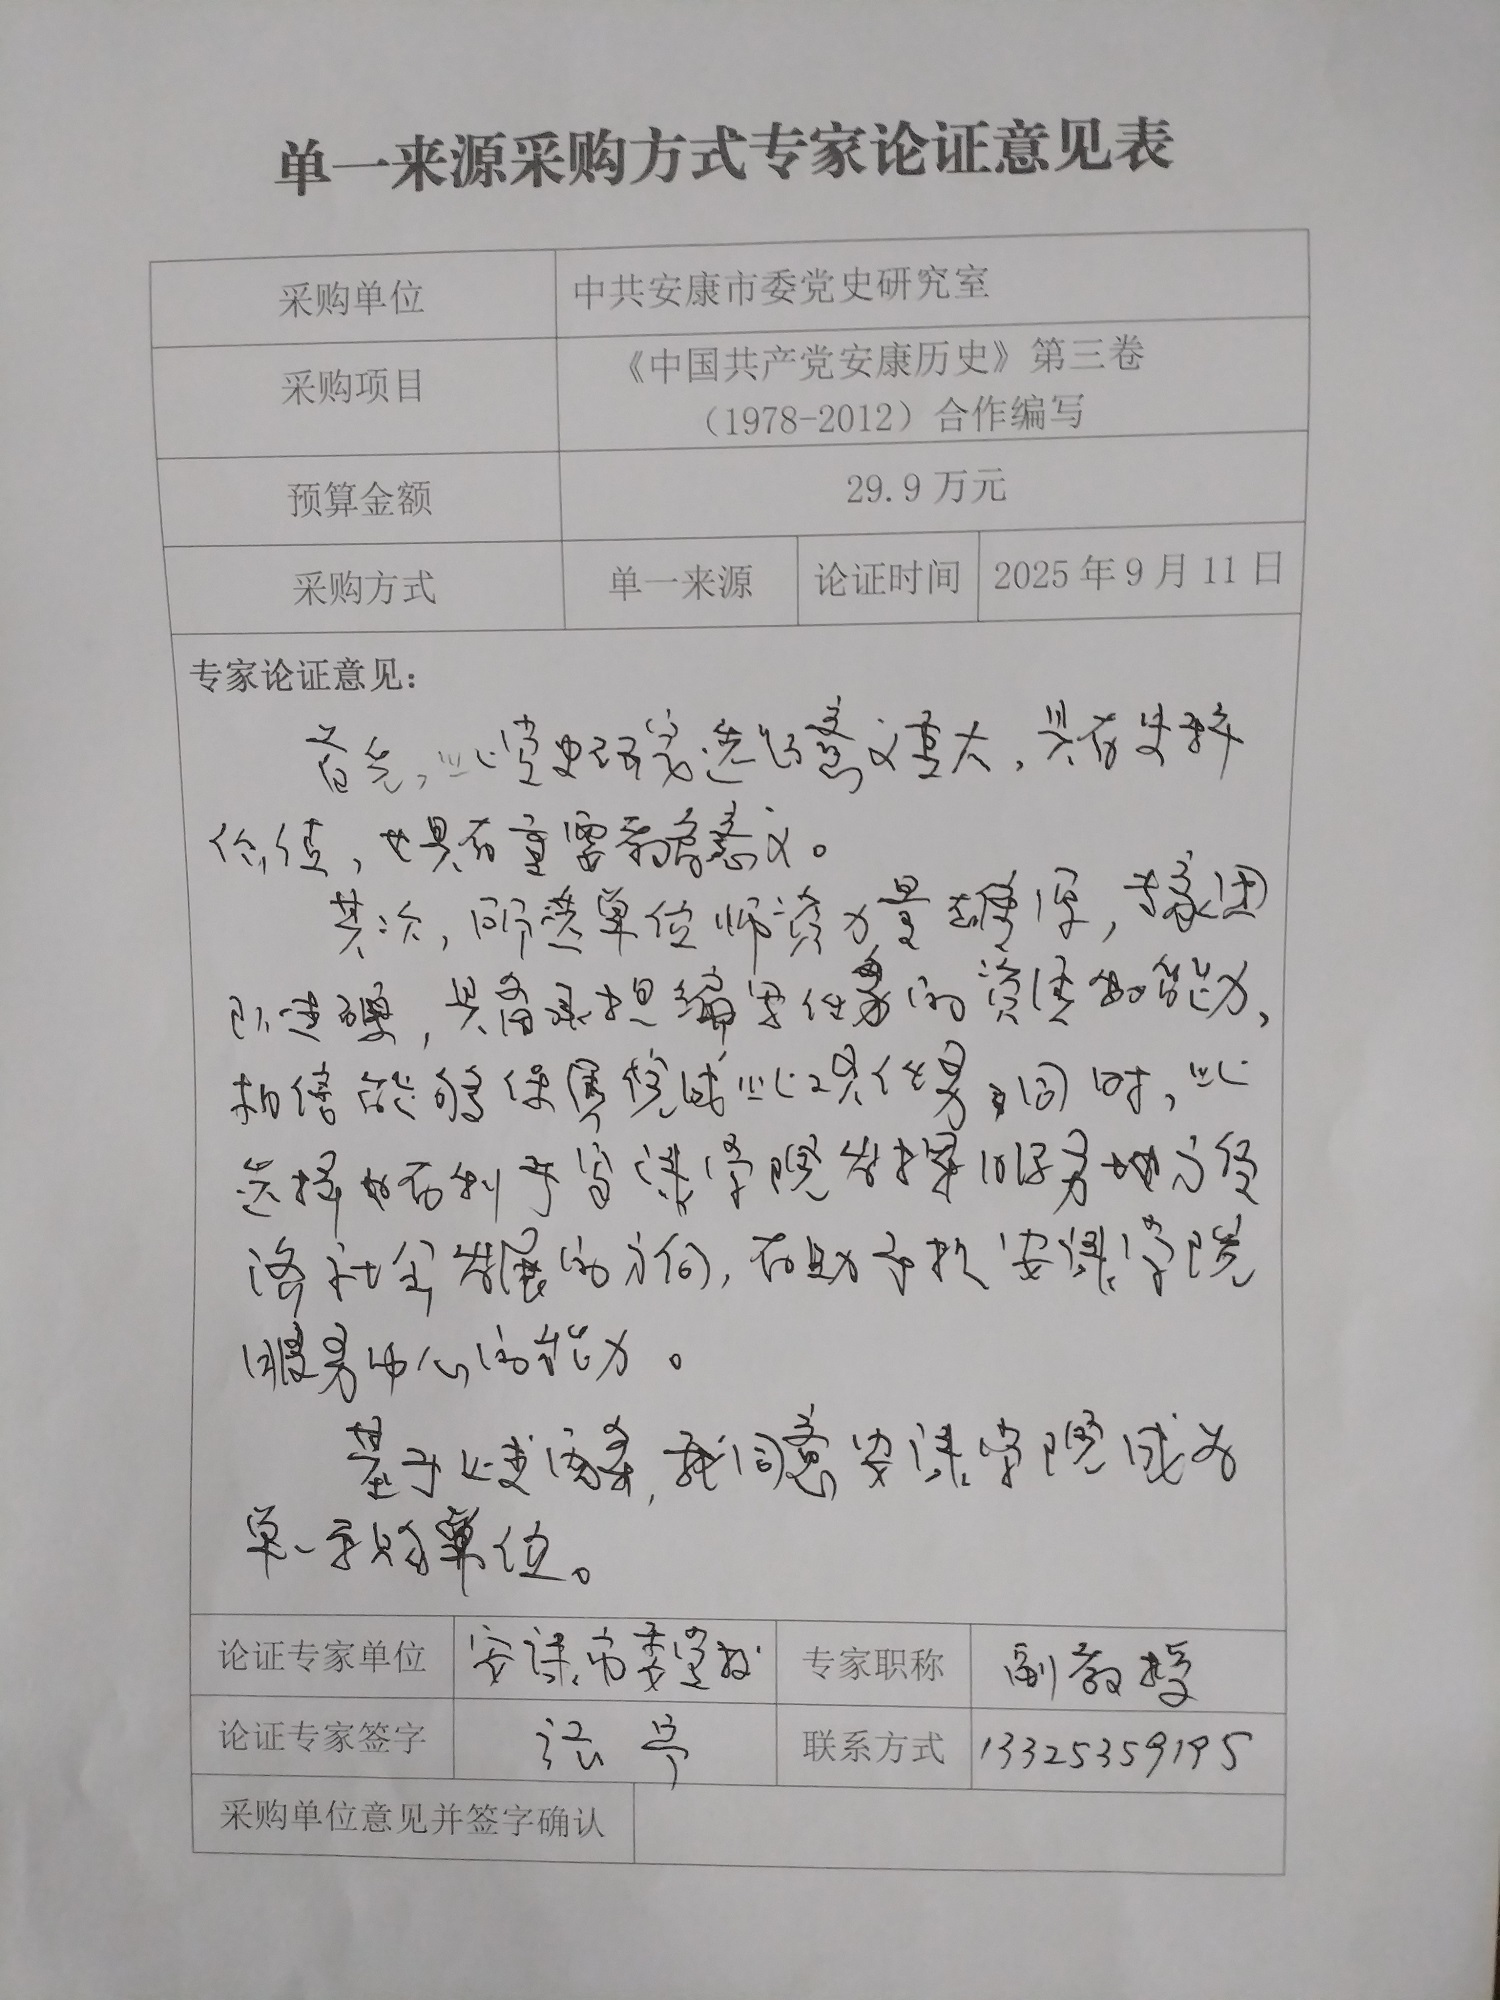 单一来源采购方式专家论证意见表
采购单位 中共安康市委党史研究室
采购项目 《中国共产党安康历史》第三卷
（1978-2012）合作编写
预算金额 29.9 万元
采购方式 单一来源 论证时间 2025 年 9 月 11 日
专家论证意见：
首先，此党史研究选题意义重大，具有史料
价值，也具有重要教育意义。
其次，所选单位师资力量雄厚，专家团
队过硬，具备承担编写任务的资质和能力，
相信能够保质完成此项任务，同时，此
选择也有利于安康学院发挥服务地方经
济社会发展的方向，有助于提 安康学院
服务中心的能力。
基于上述因素，我同意安康学院成为
单一采购单位。
论证专家单位 安康市委党校 专家职称 副教授
论证专家签字 联系方式 13325359195
采购单位意见并签字确认